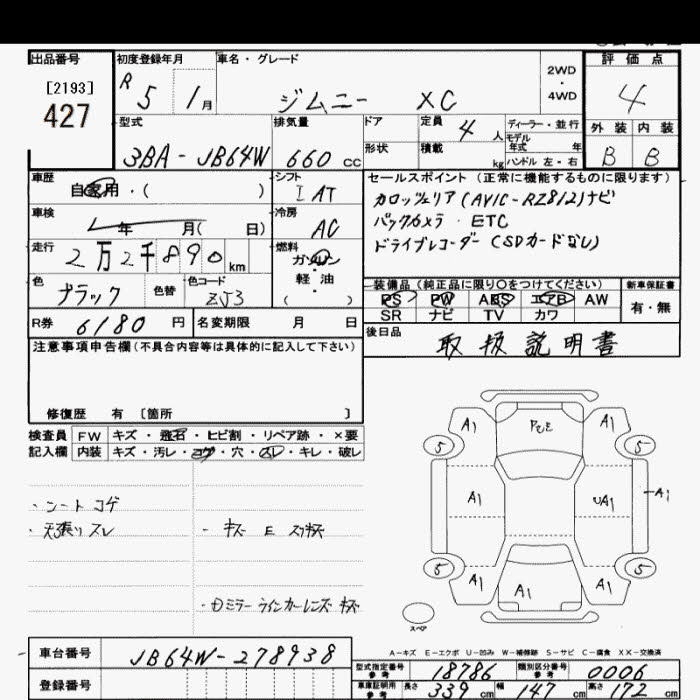 出品番号
[2193]
427
初度登録年月
R 5 1月
車名・グレード
ジムニー XC
2WD
・
4WD
評価点
4
外装 内装
B B
型式
3BA-JB64W
排気量
660 cc
ドア
形状
定員 4 人
積載 kg
ディーラー・並行
モデル
年式 年
ハンドル 左・右
車歴
自家用・( )
シフト
I AT
車検
年 月( 日)
冷房
AC
走行
2万2千890 km
燃料
ガソリン
軽・油
( )
色
ブラック
色替
色コード
ZJ3
R券 6180 円
名変期限 月 日
セールスポイント (正常に機能するものに限ります)
カロッツェリア(AVIC-RZ812)ナビ
バックカメラ・ETC
ドライブレコーダー(SDカードなし)
装備品(純正品に限り○をつけてください)
PS PW ABS エアB AW
SR ナビ TV カワ
新車保証書
有・無
後日品
取扱説明書
注意事項申告欄(不具合内容等は具体的に記入して下さい)
修復歴 有 〔箇所 〕
検査員 FW キズ・飛石・ヒビ割・リペア跡・×要
記入欄 内装 キズ・汚レ・コゲ・穴・スレ・キレ・破レ
・シートコゲ
・天張りスレ
・キズ E スリキズ
・Dミラーウインカーレンズキズ
A1 P2E A1
5 5
A1 UA1 A1
5 5
A1 A1 A1
スペア
A-キズ E-エクボ U-凹み W-補修跡 S-サビ C-腐食 XX-交換済
車台番号
JB64W-278938
登録番号
型式指定番号
参考
18786
類別区分番号
参考
0006
車庫証明用
参考
長さ 339 cm 幅 147 cm 高さ 172 cm